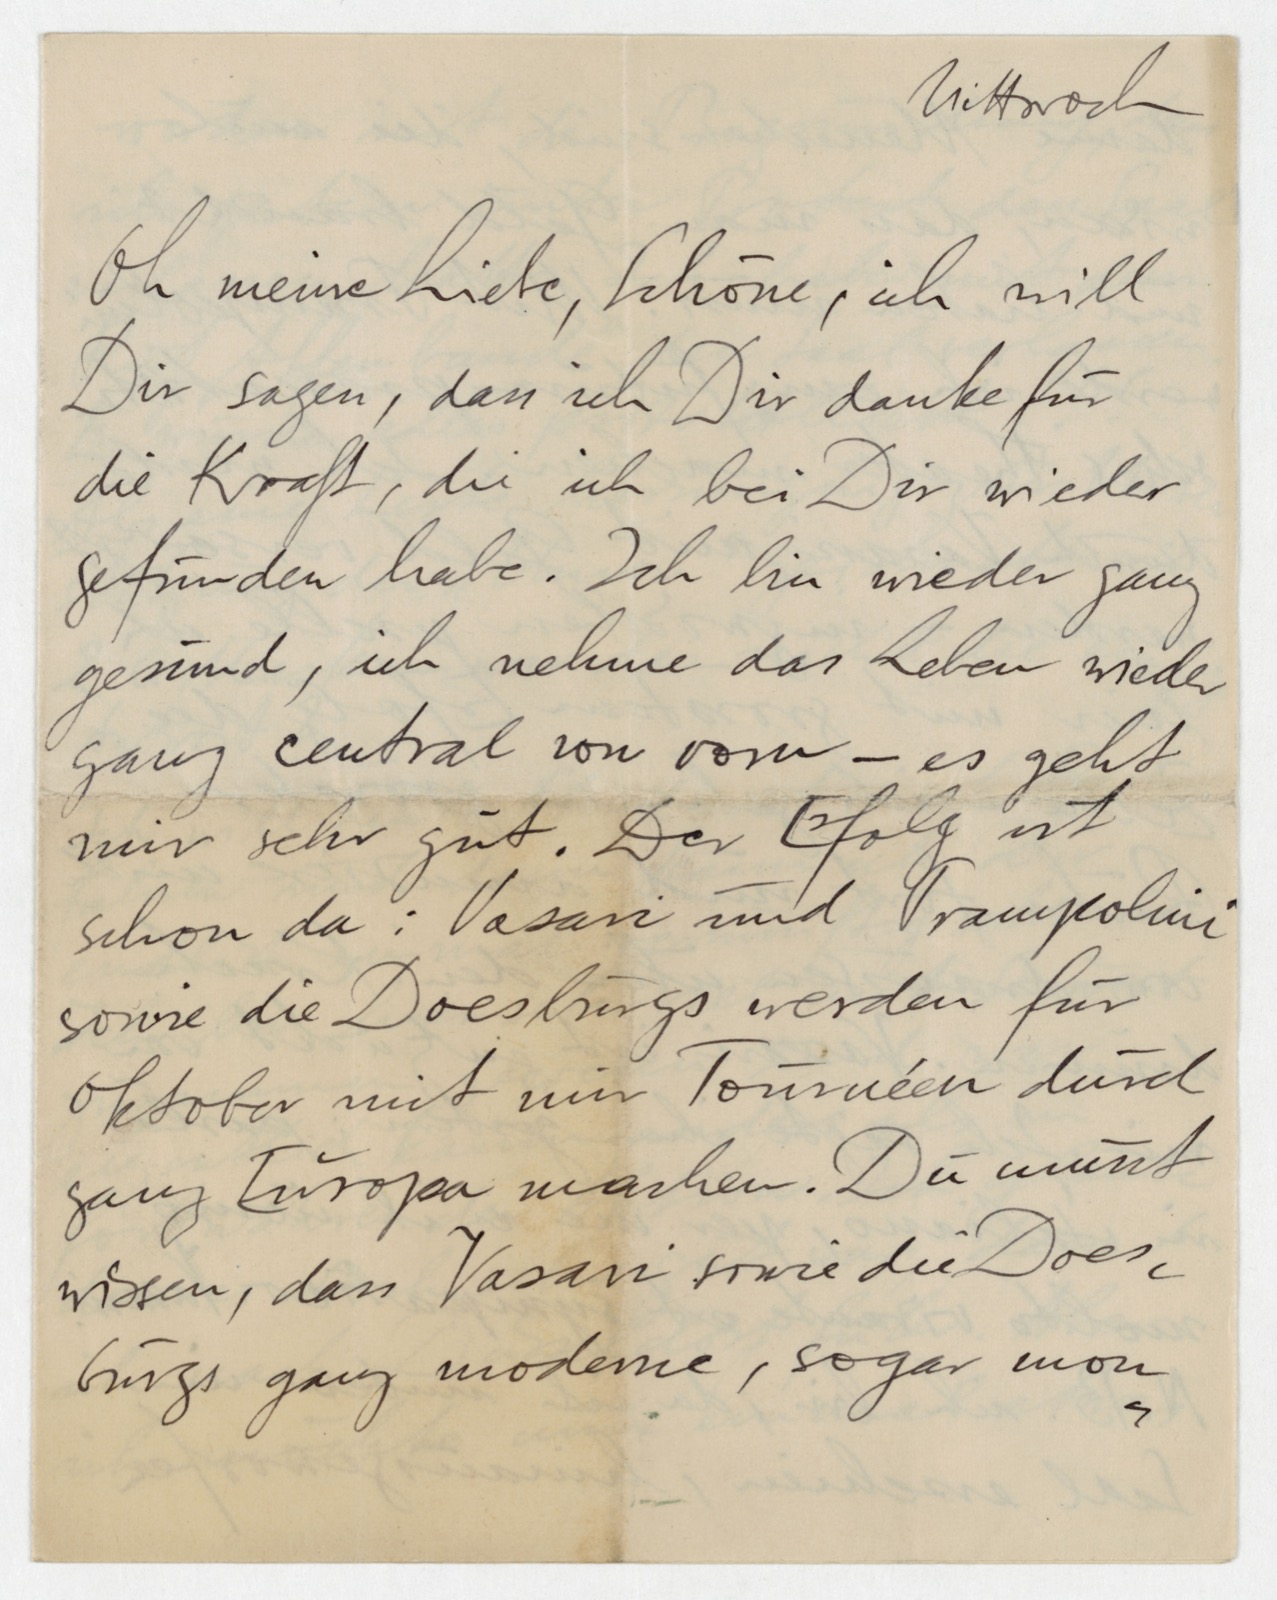 Mittwoch
Oh meine Liebe, Schöne, ich will
Dir sagen, dass ich Dir danke für
die Kraft, die ich bei Dir wieder
gefunden habe. Ich bin wieder ganz
gesund, ich nehme das Leben wieder
ganz central von vorn – es geht
mir sehr gut. Der Erfolg ist
schon da: Vasari und Prampolini
sowie die Doesburgs werden für
Oktober mit mir Tournéen durch
ganz Europa machen. Du musst
wissen, dass Vasari sowie die Does-
burgs ganz moderne, sogar mon